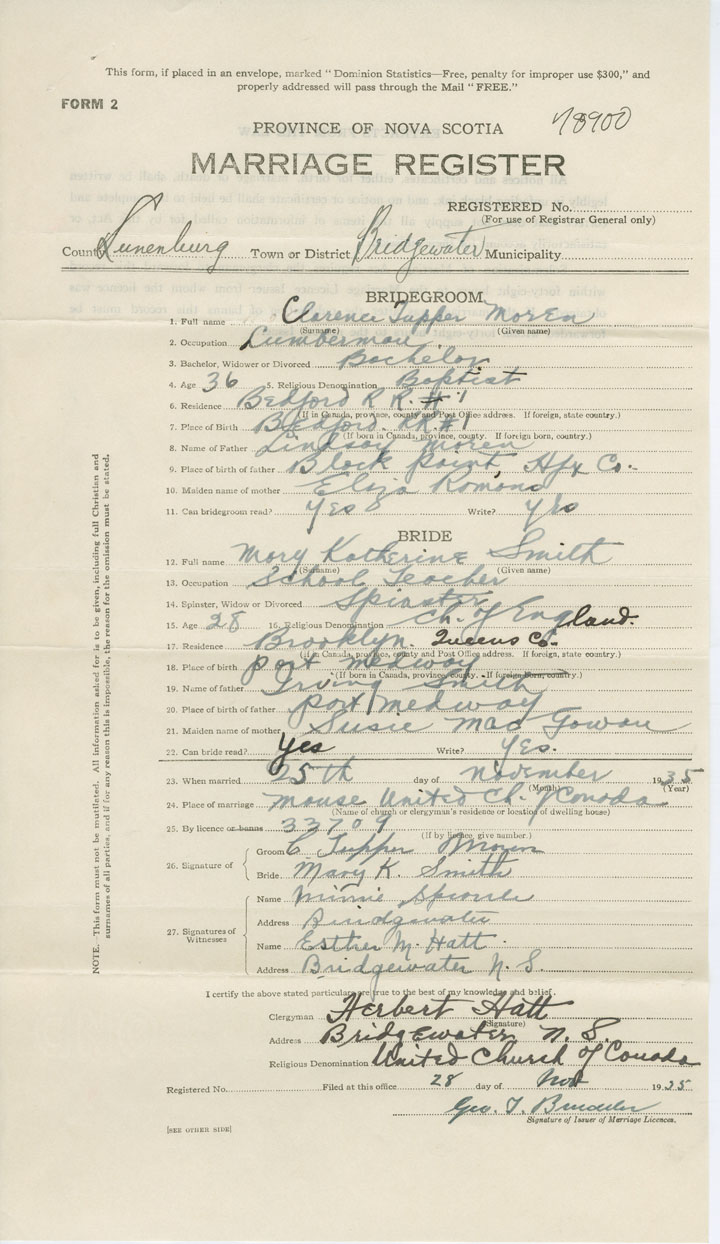 This form, if placed in an envelope, marked "Dominion Statistics—Free, penalty for improper use $300," and
properly addressed will pass through the Mail "FREE."
FORM 2
78900
PROVINCE OF NOVA SCOTIA
MARRIAGE REGISTER
REGISTERED No.
(For use of Registrar General only)
County Lunenburg Town or District Bridgewater Municipality
BRIDEGROOM
1. Full name Clarence Tupper Moren
(Surname) (Given name)
2. Occupation Lumberman
3. Bachelor, Widower or Divorced Bachelor
4. Age 36 5. Religious Denomination Baptist
6. Residence Bedford R R. #1
(If in Canada, province, county and Post Office address. If foreign, state country.)
7. Place of Birth Bedford. RR#1
(If born in Canada, province, county. If foreign born, country.)
8. Name of Father Lindsay Moren
9. Place of birth of father Black Point, Hfx Co.
10. Maiden name of mother Eliza Romans
11. Can bridegroom read? Yes Write? Yes
BRIDE
12. Full name Mary Katherine Smith
(Surname) (Given name)
13. Occupation School Teacher
14. Spinster, Widow or Divorced Spinster
15. Age 28 16. Religious Denomination Ch. of England.
17. Residence Brooklyn. Queens Co.
(If in Canada, province, county and Post Office address. If foreign, state country.)
18. Place of birth Port Medway
(If born in Canada, province, county. If foreign born, country.)
19. Name of father Irving Smith
20. Place of birth of father Port Medway
21. Maiden name of mother Susie MacGowan
22. Can bride read? Yes Write? Yes.
23. When married 25th day of November 1935
(Month) (Year)
24. Place of marriage Manse United Ch. of Canada
(Name of church or clergyman's residence or location of dwelling house)
25. By licence or banns 33709
(If by licence, give number.)
26. Signature of
Groom C Tupper Moren
Bride Mary K. Smith
27. Signatures of Witnesses
Name Minnie Sproule
Address Bridgewater
Name Esther M. Hatt
Address Bridgewater N. S.
I certify the above stated particulars are true to the best of my knowledge and belief.
Clergyman Herbert Hatt
(Signature)
Address Bridgewater N. S.
Religious Denomination United Church of Canada
Registered No. Filed at this office 28 day of Nov 1935
Geo. T.
Signature of Issuer of Marriage Licences.
[SEE OTHER SIDE]
NOTE. This form must not be mutilated. All information asked for is to be given, including full Christian and
surnames of all parties, and if for any reason this is impossible, the reason for the omission must be stated.